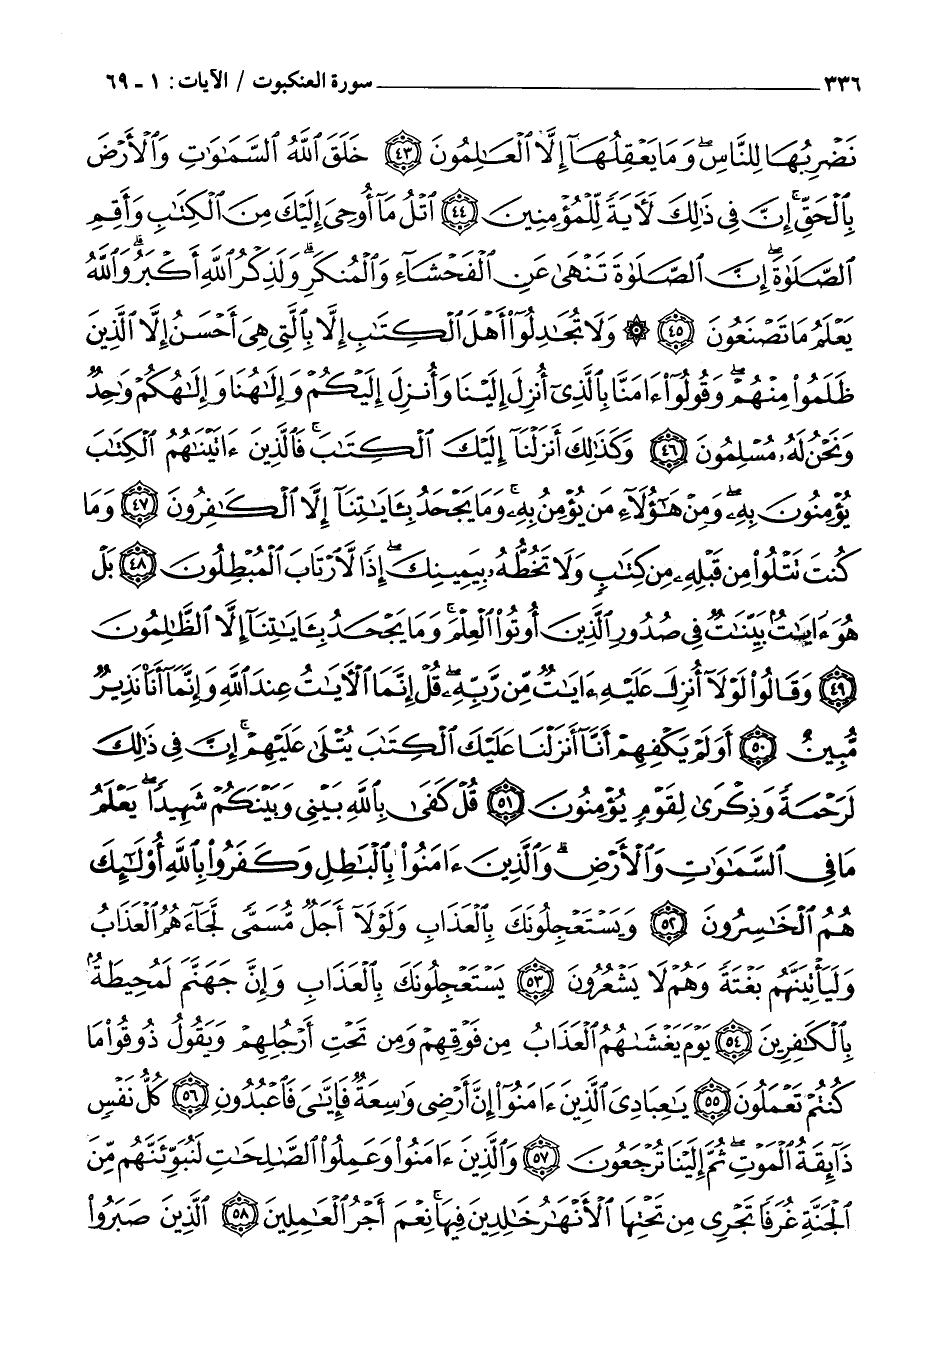 ٣٣٦ سورة العنكبوت / الآيات: ١ - ٦٩
نَضْرِبُهَا لِلنَّاسِ ۖ وَمَا يَعْقِلُهَآ إِلَّا ٱلْعَـٰلِمُونَ ٤٣ خَلَقَ ٱللَّهُ ٱلسَّمَـٰوَٰتِ وَٱلْأَرْضَ
بِٱلْحَقِّ ۚ إِنَّ فِى ذَٰلِكَ لَـَٔايَةً لِّلْمُؤْمِنِينَ ٤٤ ٱتْلُ مَآ أُوحِىَ إِلَيْكَ مِنَ ٱلْكِتَـٰبِ وَأَقِمِ
ٱلصَّلَوٰةَ ۖ إِنَّ ٱلصَّلَوٰةَ تَنْهَىٰ عَنِ ٱلْفَحْشَآءِ وَٱلْمُنكَرِ ۗ وَلَذِكْرُ ٱللَّهِ أَكْبَرُ ۗ وَٱللَّهُ
يَعْلَمُ مَا تَصْنَعُونَ ٤٥ ۞ وَلَا تُجَـٰدِلُوٓا۟ أَهْلَ ٱلْكِتَـٰبِ إِلَّا بِٱلَّتِى هِىَ أَحْسَنُ إِلَّا ٱلَّذِينَ
ظَلَمُوا۟ مِنْهُمْ ۖ وَقُولُوٓا۟ ءَامَنَّا بِٱلَّذِىٓ أُنزِلَ إِلَيْنَا وَأُنزِلَ إِلَيْكُمْ وَإِلَـٰهُنَا وَإِلَـٰهُكُمْ وَٰحِدٌ
وَنَحْنُ لَهُۥ مُسْلِمُونَ ٤٦ وَكَذَٰلِكَ أَنزَلْنَآ إِلَيْكَ ٱلْكِتَـٰبَ ۚ فَٱلَّذِينَ ءَاتَيْنَـٰهُمُ ٱلْكِتَـٰبَ
يُؤْمِنُونَ بِهِۦ ۖ وَمِنْ هَـٰٓؤُلَآءِ مَن يُؤْمِنُ بِهِۦ ۚ وَمَا يَجْحَدُ بِـَٔايَـٰتِنَآ إِلَّا ٱلْكَـٰفِرُونَ ٤٧ وَمَا
كُنتَ تَتْلُوا۟ مِن قَبْلِهِۦ مِن كِتَـٰبٍ وَلَا تَخُطُّهُۥ بِيَمِينِكَ ۖ إِذًا لَّٱرْتَابَ ٱلْمُبْطِلُونَ ٤٨ بَلْ
هُوَ ءَايَـٰتٌۢ بَيِّنَـٰتٌ فِى صُدُورِ ٱلَّذِينَ أُوتُوا۟ ٱلْعِلْمَ ۚ وَمَا يَجْحَدُ بِـَٔايَـٰتِنَآ إِلَّا ٱلظَّـٰلِمُونَ
٤٩ وَقَالُوا۟ لَوْلَآ أُنزِلَ عَلَيْهِ ءَايَـٰتٌ مِّن رَّبِّهِۦ ۖ قُلْ إِنَّمَا ٱلْـَٔايَـٰتُ عِندَ ٱللَّهِ وَإِنَّمَآ أَنَا۠ نَذِيرٌ
مُّبِينٌ ٥٠ أَوَلَمْ يَكْفِهِمْ أَنَّآ أَنزَلْنَا عَلَيْكَ ٱلْكِتَـٰبَ يُتْلَىٰ عَلَيْهِمْ ۚ إِنَّ فِى ذَٰلِكَ
لَرَحْمَةً وَذِكْرَىٰ لِقَوْمٍ يُؤْمِنُونَ ٥١ قُلْ كَفَىٰ بِٱللَّهِ بَيْنِى وَبَيْنَكُمْ شَهِيدًا ۖ يَعْلَمُ
مَا فِى ٱلسَّمَـٰوَٰتِ وَٱلْأَرْضِ ۗ وَٱلَّذِينَ ءَامَنُوا۟ بِٱلْبَـٰطِلِ وَكَفَرُوا۟ بِٱللَّهِ أُو۟لَـٰٓئِكَ
هُمُ ٱلْخَـٰسِرُونَ ٥٢ وَيَسْتَعْجِلُونَكَ بِٱلْعَذَابِ وَلَوْلَآ أَجَلٌ مُّسَمًّى لَّجَآءَهُمُ ٱلْعَذَابُ
وَلَيَأْتِيَنَّهُم بَغْتَةً وَهُمْ لَا يَشْعُرُونَ ٥٣ يَسْتَعْجِلُونَكَ بِٱلْعَذَابِ وَإِنَّ جَهَنَّمَ لَمُحِيطَةٌۢ
بِٱلْكَـٰفِرِينَ ٥٤ يَوْمَ يَغْشَىٰهُمُ ٱلْعَذَابُ مِن فَوْقِهِمْ وَمِن تَحْتِ أَرْجُلِهِمْ وَيَقُولُ ذُوقُوا۟ مَا
كُنتُمْ تَعْمَلُونَ ٥٥ يَـٰعِبَادِىَ ٱلَّذِينَ ءَامَنُوٓا۟ إِنَّ أَرْضِى وَٰسِعَةٌ فَإِيَّـٰىَ فَٱعْبُدُونِ ٥٦ كُلُّ نَفْسٍ
ذَآئِقَةُ ٱلْمَوْتِ ۖ ثُمَّ إِلَيْنَا تُرْجَعُونَ ٥٧ وَٱلَّذِينَ ءَامَنُوا۟ وَعَمِلُوا۟ ٱلصَّـٰلِحَـٰتِ لَنُبَوِّئَنَّهُم مِّنَ
ٱلْجَنَّةِ غُرَفًا تَجْرِى مِن تَحْتِهَا ٱلْأَنْهَـٰرُ خَـٰلِدِينَ فِيهَا ۚ نِعْمَ أَجْرُ ٱلْعَـٰمِلِينَ ٥٨ ٱلَّذِينَ صَبَرُوا۟